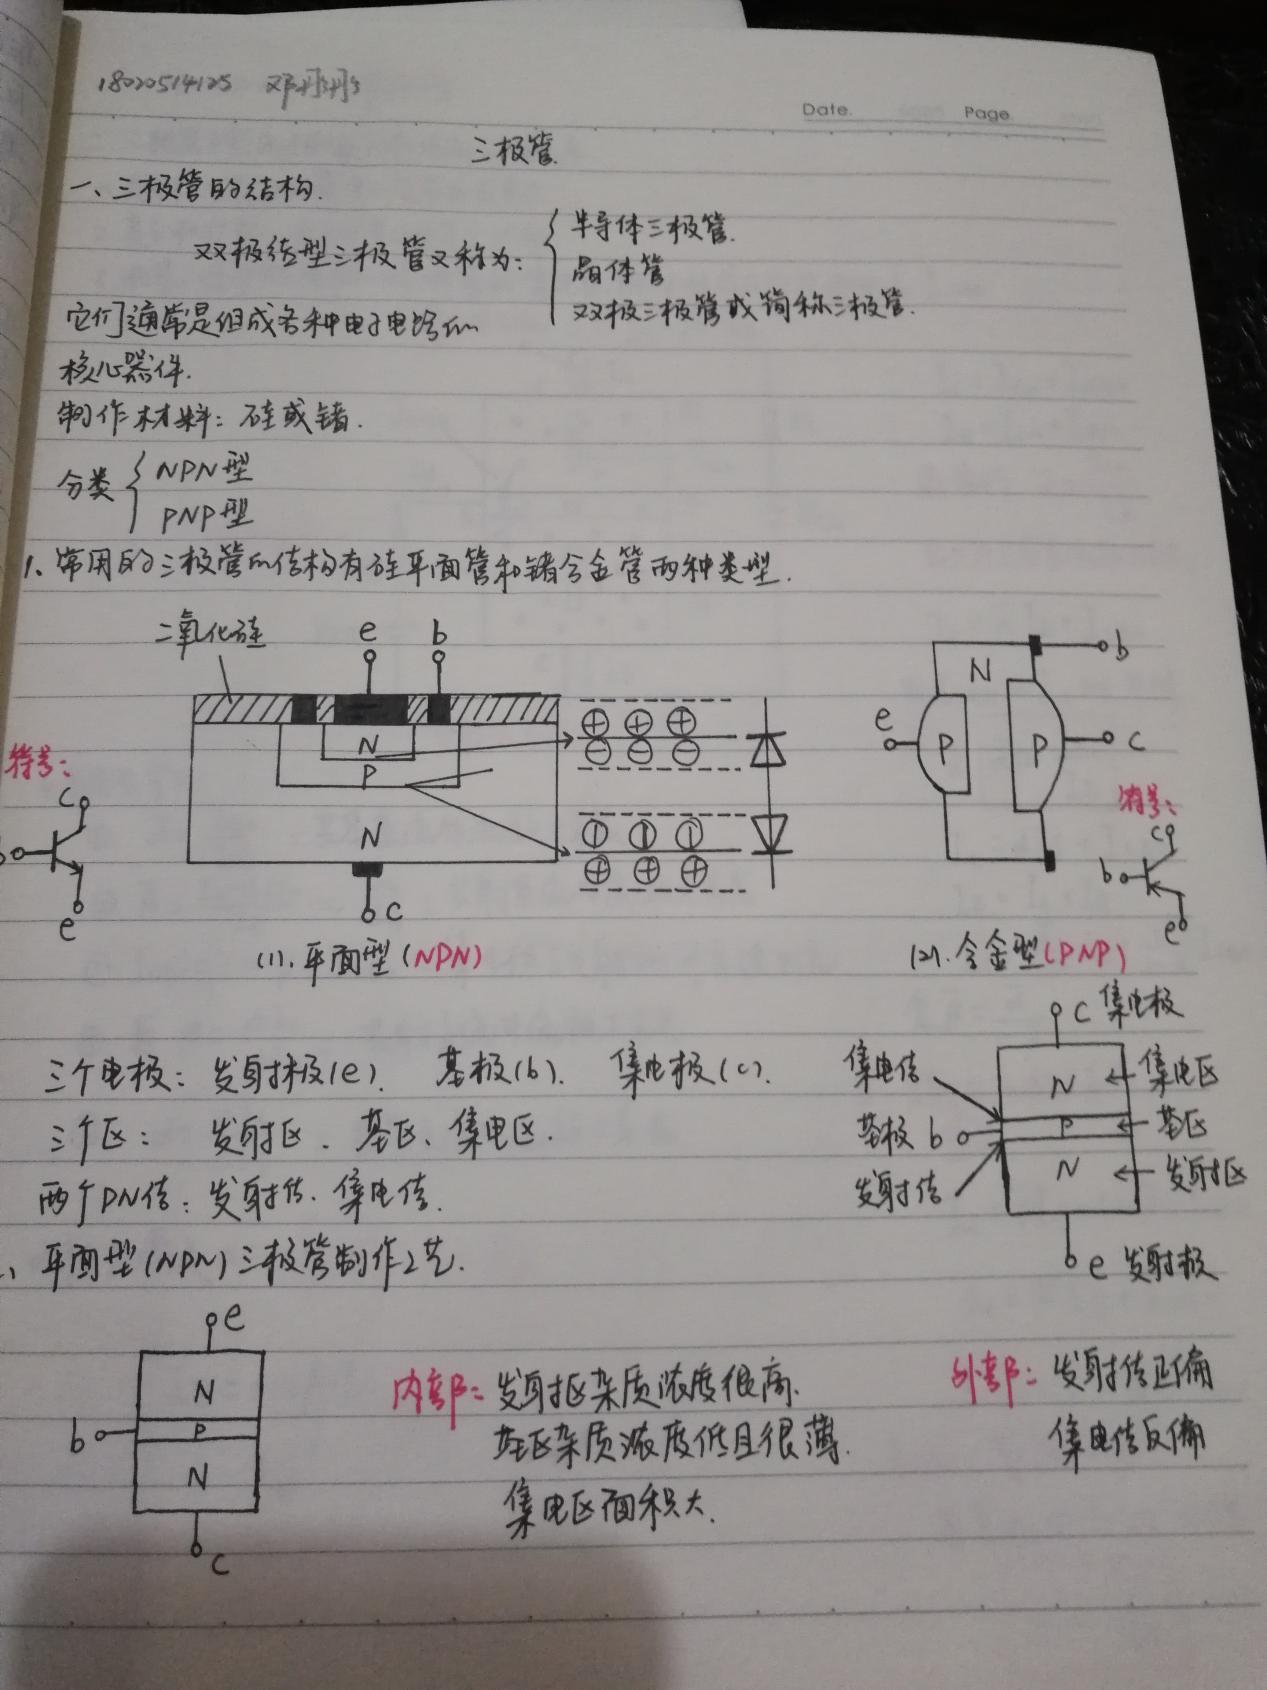 18020514125 邓彤彤
Date. Page.
三极管.
一、三极管的结构.
双极结型三极管又称为:
半导体三极管.
晶体管
双极三极管或简称三极管.
它们通常是组成各种电子电路的
核心器件.
制作材料: 硅或锗.
分类
NPN型
PNP型
1、常用的三极管的结构有硅平面管和锗合金管两种类型.
二氧化硅
e
b
N
P
N
c
符号:
c
b
e
(1). 平面型 (NPN)
N
b
e
P
P
c
符号:
c
b
e
(2). 合金型 (PNP)
三个电极: 发射极(e). 基极(b). 集电极(c).
三个区: 发射区、基区、集电区.
两个PN结: 发射结. 集电结.
c 集电极
集电结
N
集电区
基极 b
P
基区
发射结
N
发射区
e 发射极
、平面型(NPN)三极管制作工艺.
e
N
b
P
N
c
内部: 发射区杂质浓度很高.
基区杂质浓度低且很薄.
集电区面积大.
外部: 发射结正偏
集电结反偏